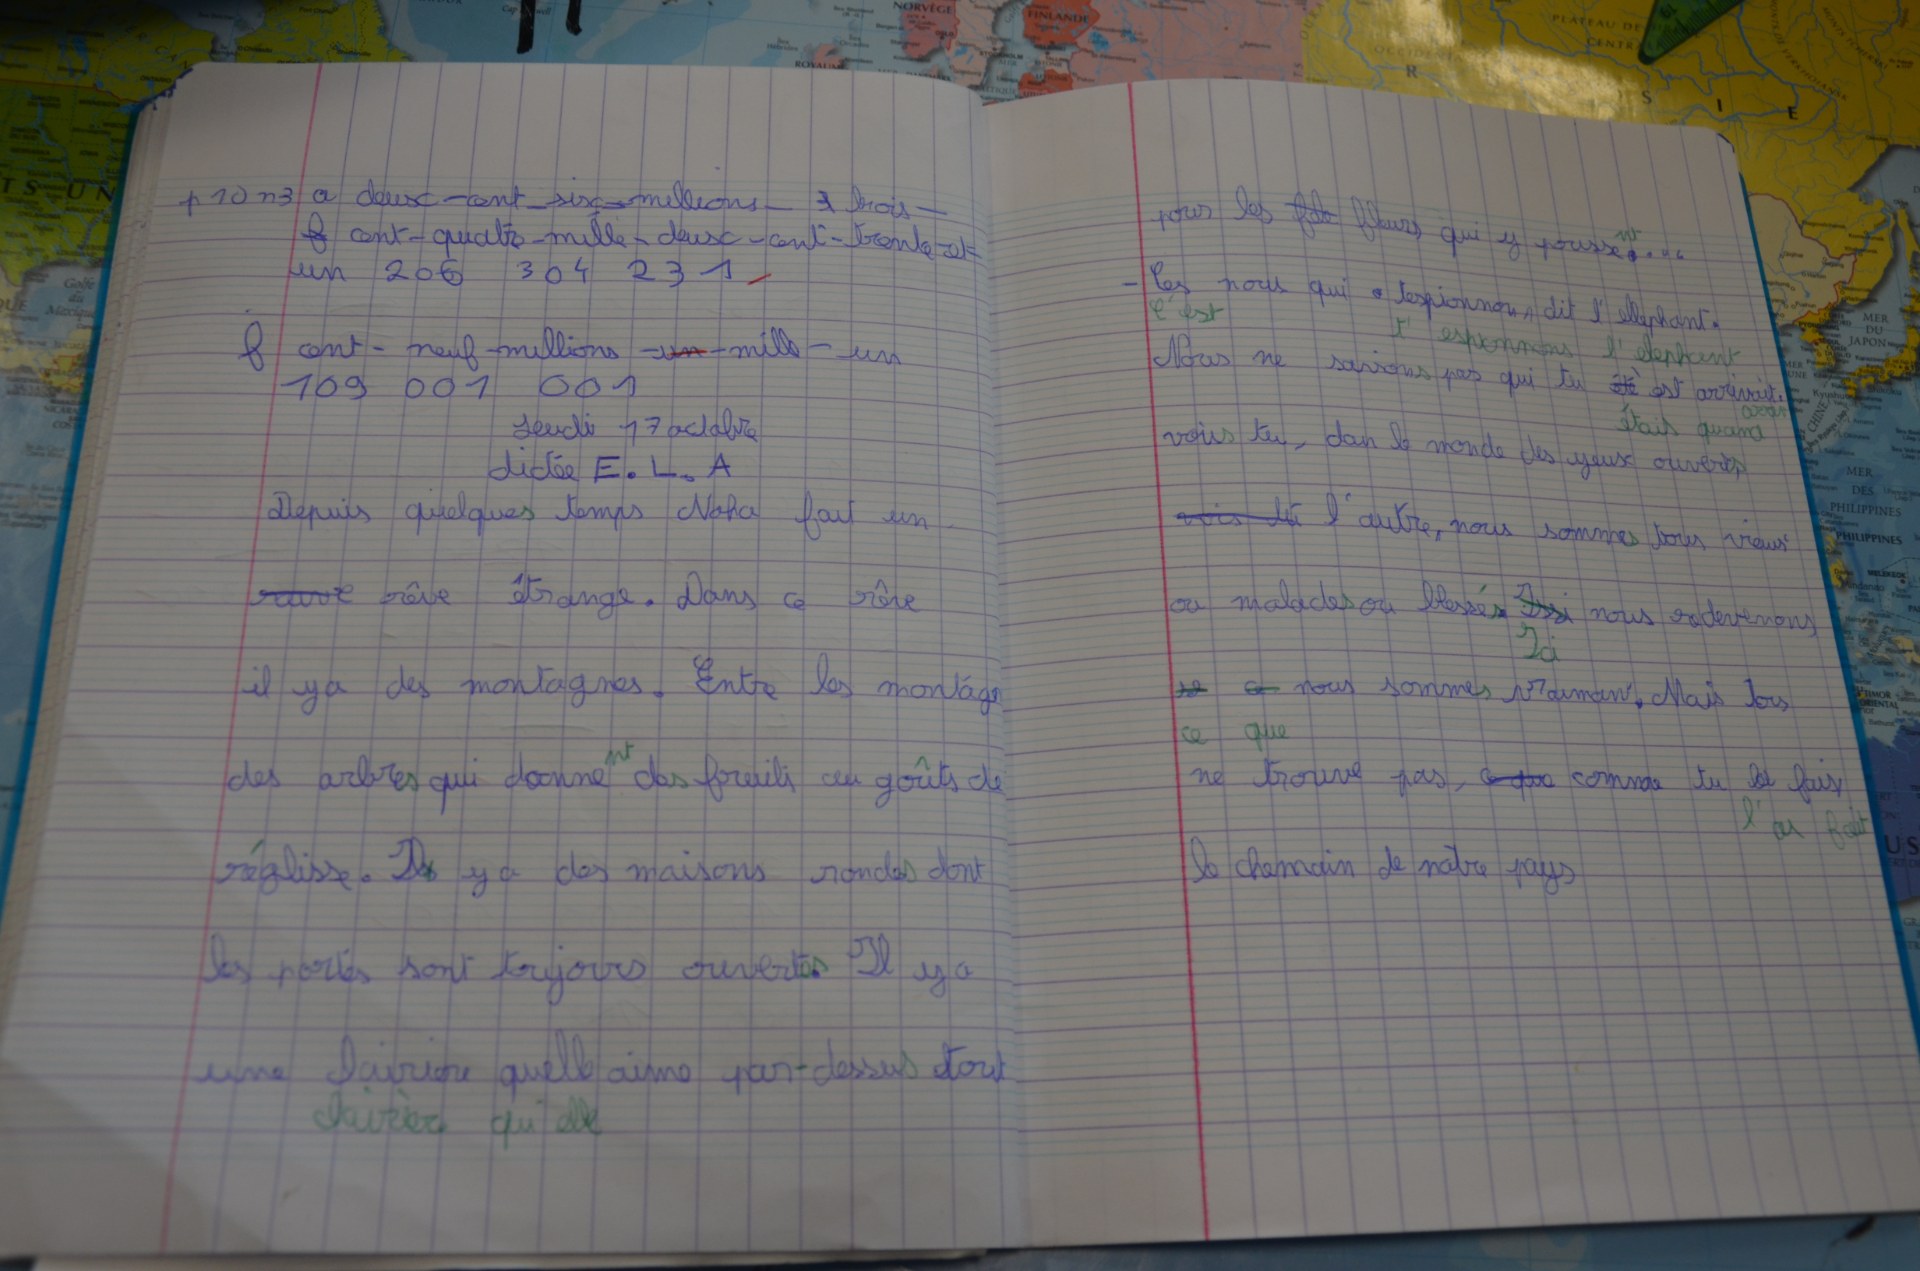 p 10 n3 a deux-cent-six-millions- trois-
cent-quatre-mille-deux-cent-trente-et-
un 206 304 231
b cent-neuf-millions-un-mille-un
109 001 001
Jeudi 17 octobre
dictée E.L.A
Depuis quelques temps Noha fait un
rêve étrange. Dans ce rêve
il y a des montagnes. Entre les montags
des arbres qui donne des freuits au goûts de
nt
réglisse. Il y a des maisons rondes dont
les portes sont toujours ouvertes Il y a
une clairière quelle aime par-dessus tout
clairière qu'elle
pour les fleurs qui y pousse...
nt
- Ces nous qui t'espionnons, dit l'elephant.
c'est t'espionnons l'elephant
Nous ne savions pas qui tu est arrivait.
étais quand
vois tu, dan le monde des yeux ouverts,
l'autre, nous sommes tous vieux
ou malades ou blessés. Issi nous redevenons
Ici
se ce nous sommes vraiman. Mais tous
ce que
ne trouve pas, comme tu le fais
l'as fait
le chemain de nôtre pays
NORVÈGE
FINLANDE
ROYAUME
PLATEAU DE
CENTR
S I E
R
TS UN
Golfe
du
MER
DU
JAPON
CHINE
MER
DES
PHILIPPINES
PHILIPPINES
TIMOR
ORIENTAL
US